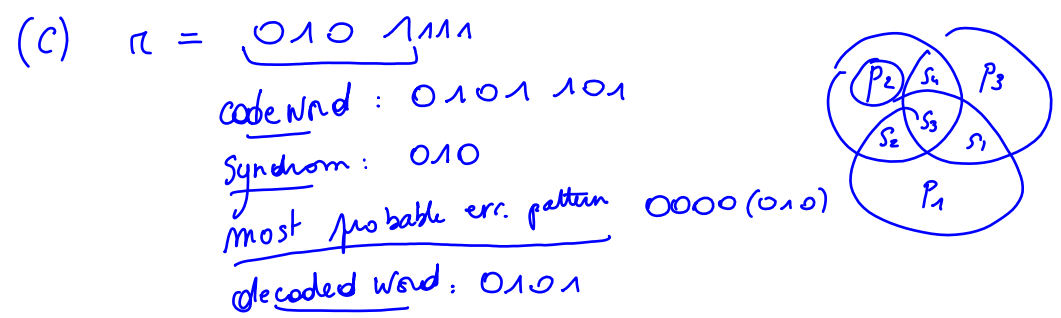 (C) r = 010 1111
codeword : 0101 101
Syndrom : 010
most probable err. pattern 0000(010)
decoded word : 0101
P2 S4 P3
S2 S3 S1
P1